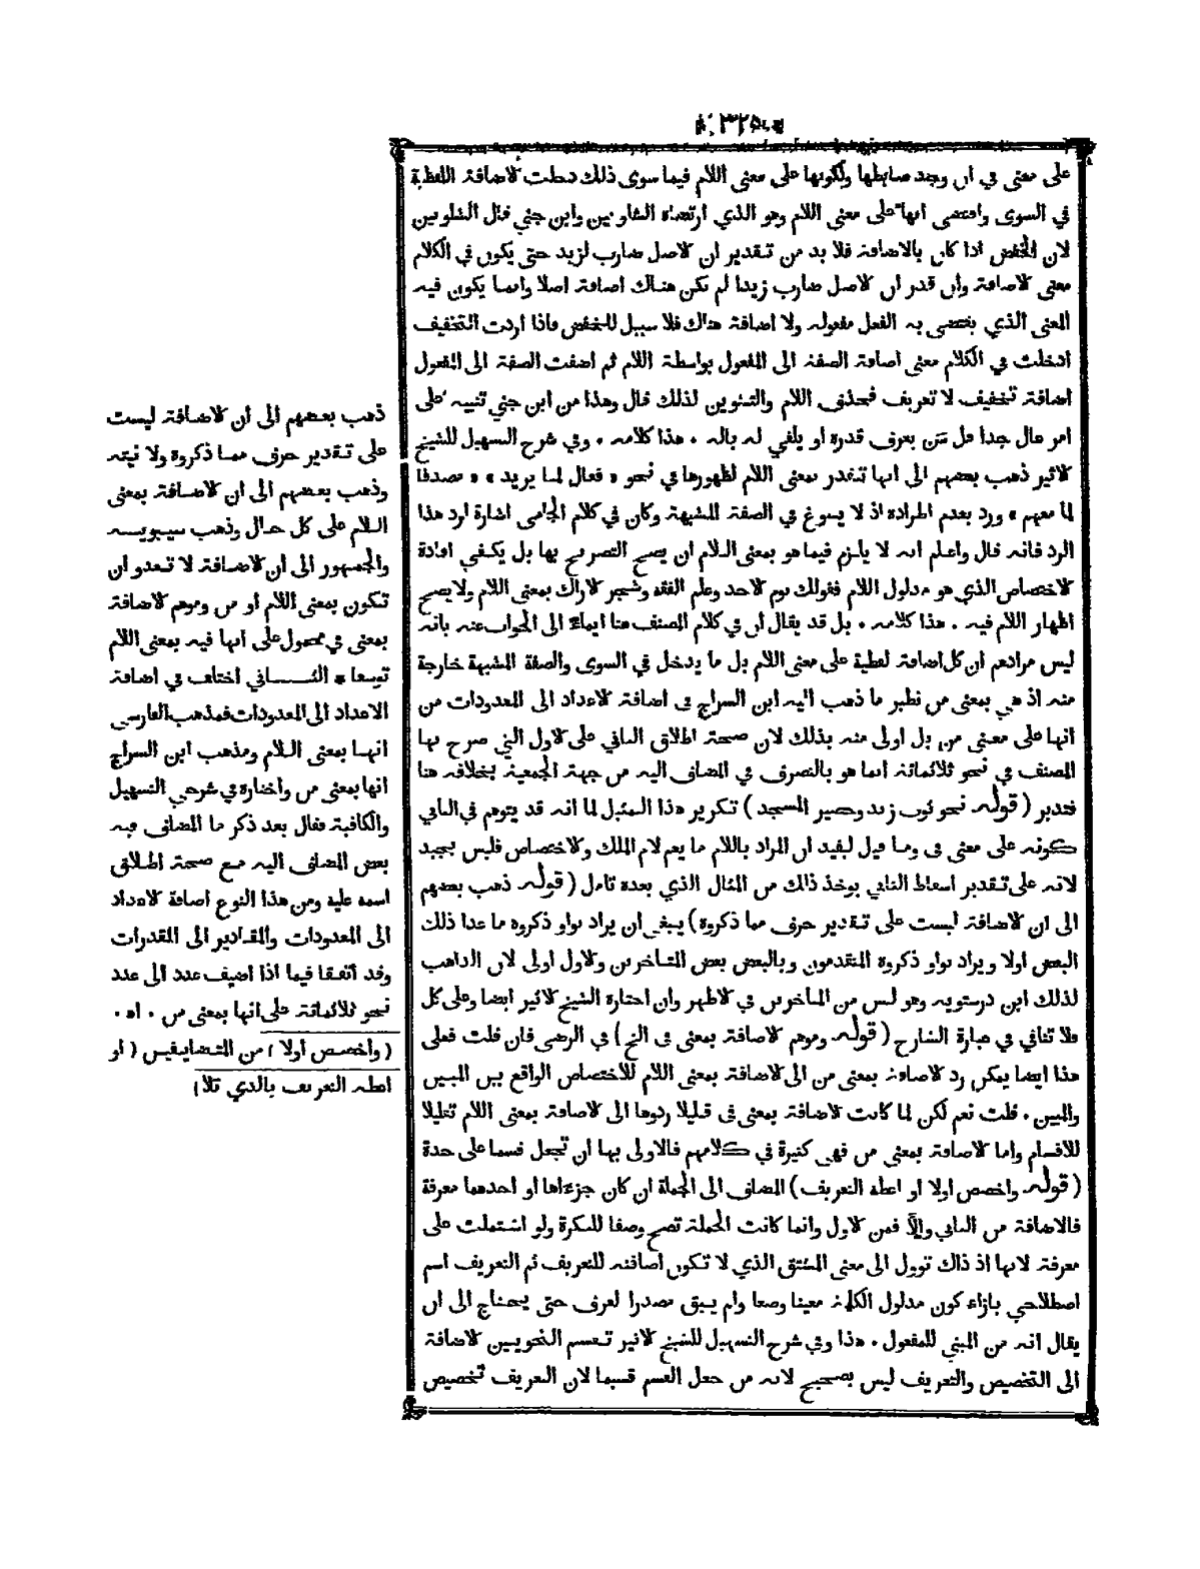 ٣٢٥
على معنى في ان وجد ضابطها ولكونها على معنى اللام فيما سوى ذلك دخلت الاضافة اللفظية
في السوى واقتضى انها على معنى اللام وهو الذي ارتضاه الشلوبين وابن جني قال الشلوبين
لان الخفض اذا كان بالاضافة فلا بد من تقدير ان الاصل ضارب لزيد حتى يكون في الكلام
معنى الاضافة وان قدر ان الاصل ضارب زيدا لم تكن هناك اضافة اصلا وانما يكون فيه
المعنى الذي يقتضى به الفعل مفعوله ولا اضافة هناك فلا سبيل للخفض فاذا اردت التخفيف
ادخلت في الكلام معنى اضافة الصفة الى المفعول بواسطة اللام ثم اضفت الصفة الى المفعول
اضافة تخفيف لا تعريف فحذف اللام والتنوين لذلك قال وهذا من ابن جني تنبيه على
امر عال جدا قل من يعرف قدره او يلقي له باله . هذا كلامه . وفي شرح التسهيل للشيخ
الاثير ذهب بعضهم الى انها تتقدر بمعنى اللام لظهورها في نحو « فعال لما يريد » « مصدقا
لما معهم » ورد بعدم اطراده اذ لا يسوغ في الصفة المشبهة وكان في كلام الجامى اشارة لرد هذا
الرد فانه قال واعلم انه لا يلزم فيما هو بمعنى اللام ان يصح التصريح بها بل يكفي افادة
الاختصاص الذي هو مدلول اللام فقولك يوم الاحد وعلم الفقه وشجر الاراك بمعنى اللام ولا يصح
اظهار اللام فيه . هذا كلامه . بل قد يقال ان في كلام المصنف هنا ايماء الى الجواب عنه بانه
ليس مرادهم ان كل اضافة لفظية على معنى اللام بل ما يدخل في السوى والصفة المشبهة خارجة
منه اذ هي بمعنى من نظير ما ذهب اليه ابن السراج فى اضافة الاعداد الى المعدودات من
انها على معنى من بل اولى منه بذلك لان صحة اطلاق الثاني على الاول التي صرح بها
المصنف في نحو ثلاثمائة انما هو بالتصرف في المضاف اليه من جهة الجمعية بخلافه هنا
فتدبر ( قوله نحو ثوب زيد وحصير المسجد ) تكرير هذا المثيل لما انه قد يتوهم في الثاني
كونه على معنى فى وما قيل ليفيد ان المراد باللام ما يعم لام الملك والاختصاص فليس بجيد
لانه على تقدير اسقاط الثاني يوخذ ذلك من المثال الذي بعده تامل ( قوله ذهب بعضهم
الى ان الاضافة ليست على تقدير حرف مما ذكروه ) ينبغي ان يراد بواو ذكروه ما عدا ذلك
البعض اولا ويراد بواو ذكروه المتقدمون وبالبعض بعض المتاخرين والاول اولى لان الذاهب
لذلك ابن درستويه وهو ليس من المتاخرين في الاظهر وان اختاره الشيخ الاثير ايضا وعلى كل
فلا تنافي في عبارة الشارح ( قوله وموهم الاضافة بمعنى فى الخ ) في الرضى فان قلت فعلى
هذا ايضا يمكن رد الاضافة بمعنى من الى الاضافة بمعنى اللام للاختصاص الواقع بين المبين
والمبين . قلت نعم لكن لما كانت الاضافة بمعنى فى قليلا ردوها الى الاضافة بمعنى اللام تقليلا
للاقسام واما الاضافة بمعنى من فهى كثيرة في كلامهم فالاولى بها ان تجعل قسما على حدة
( قوله واخصص اولا او اعطه التعريف ) المضاف الى الجملة ان كان جزءاها او احدهما معرفة
فالاضافة من الثاني والا فمن الاول وانما كانت الجملة تصح وصفا للنكرة ولو اشتملت على
معرفة لانها اذ ذاك توول الى معنى المشتق الذي لا تكون اضافته للتعريف ثم التعريف اسم
اصطلاحي بازاء كون مدلول الكلمة معينا وضعا ولم يبق مصدرا لعرف حتى يحتاج الى ان
يقال انه من المبني للمفعول . هذا وفي شرح التسهيل للشيخ الاثير تقسيم النحويين الاضافة
الى التخصيص والتعريف ليس بصحيح لانه من جعل القسم قسيما لان التعريف تخصيص
ذهب بعضهم الى ان الاضافة ليست
على تقدير حرف مما ذكروه ولا نيته
وذهب بعضهم الى ان الاضافة بمعنى
اللام على كل حال وذهب سيبويه
والجمهور الى ان الاضافة لا تعدو ان
تكون بمعنى اللام او من وموهم الاضافة
بمعنى في محمول على انها فيه بمعنى اللام
توسعا * الثاني اختلف في اضافة
الاعداد الى المعدودات فمذهب الفارسي
انها بمعنى اللام ومذهب ابن السراج
انها بمعنى من واختاره في شرحي التسهيل
والكافية فقال بعد ذكر ما المضاف فيه
بعض المضاف اليه مع صحة اطلاق
اسمه عليه ومن هذا النوع اضافة الاعداد
الى المعدودات والمقادير الى المقدرات
وقد اتفقا فيما اذا اضيف عدد الى عدد
نحو ثلاثمائة على انها بمعنى من . اه .
( واخصص اولا ) من المتضايفين ( او
اعطه التعريف بالذي تلا )